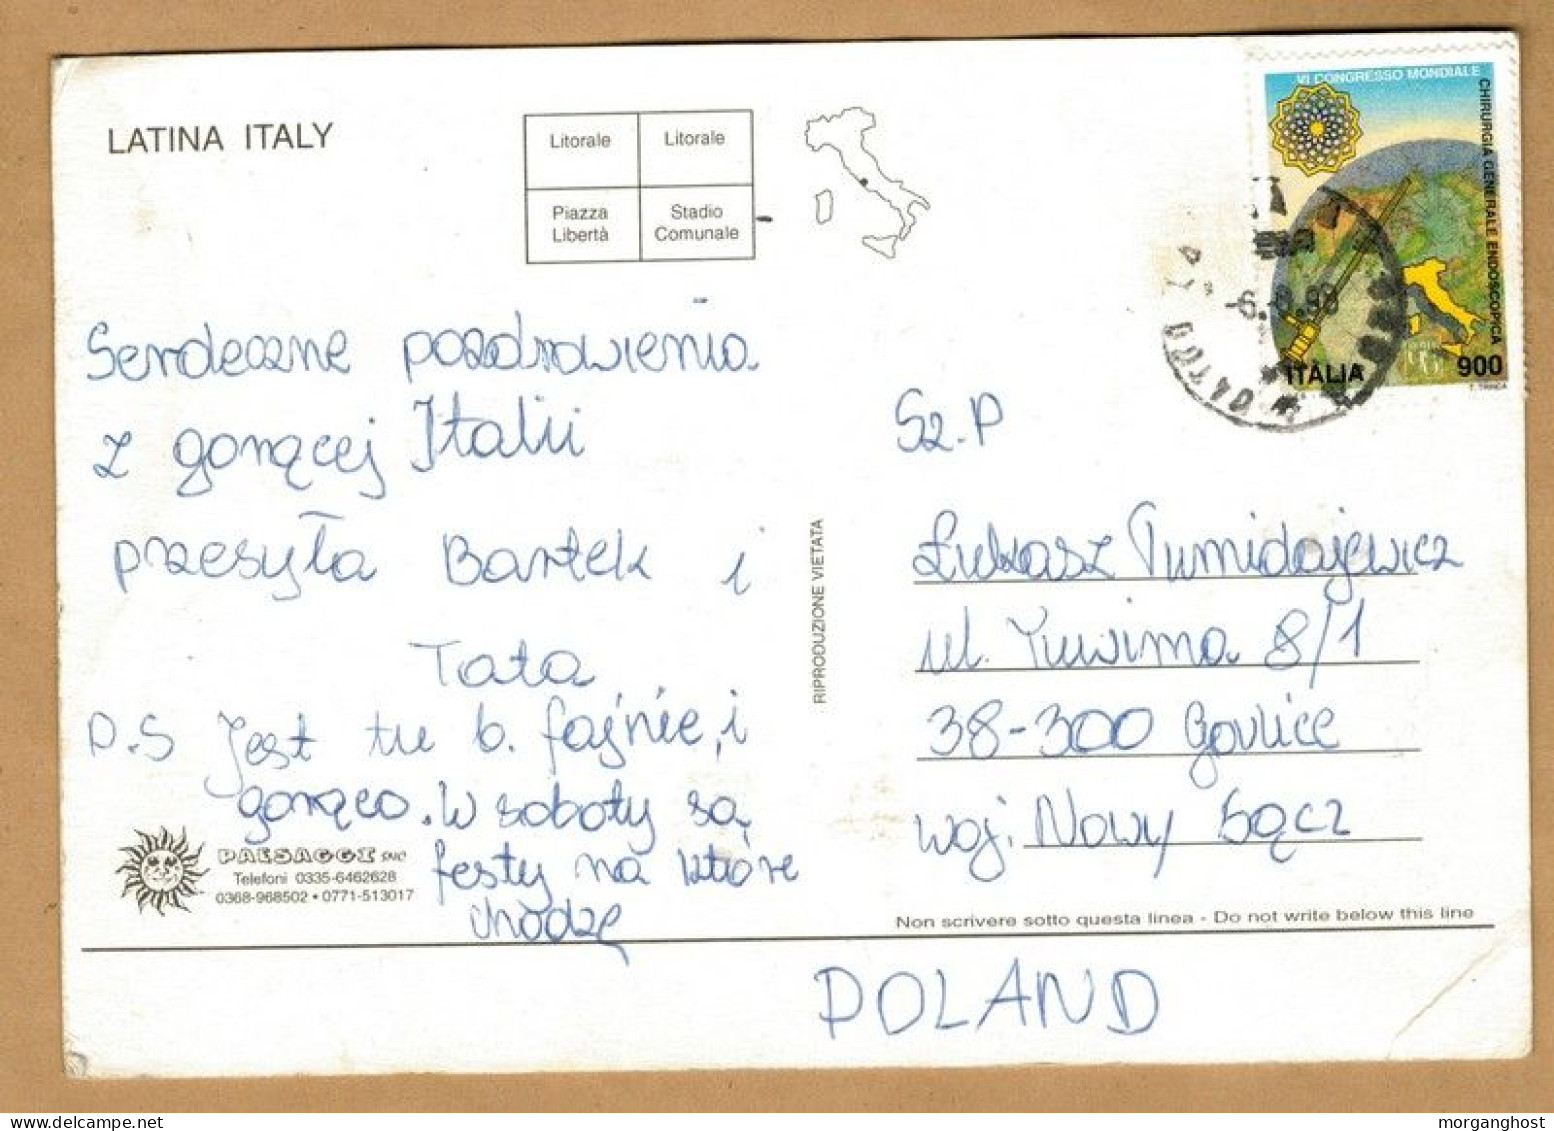 LATINA ITALY
Litorale Litorale
Piazza Libertà
Stadio Comunale
VI CONGRESSO MONDIALE
CHIRURGIA GENERALE ENDOSCOPICA
ITALIA 900
T. TRINCA
Serdeczne pozdrowienia
z gorącej Italii
przesyła Bartek i
Tata
P.S Jest tu b. fajnie, i
gorąco. W soboty są
festy na które
chodzę
PAESAGGI snc
Telefoni 0335-6462628
0368-968502 • 0771-513017
RIPRODUZIONE VIETATA
Sz. P
Łukasz Tumidajewicz
ul. Tuwima 8/1
38-300 Gorlice
woj. Nowy Sącz
Non scrivere sotto questa linea - Do not write below this line
POLAND
morganghost